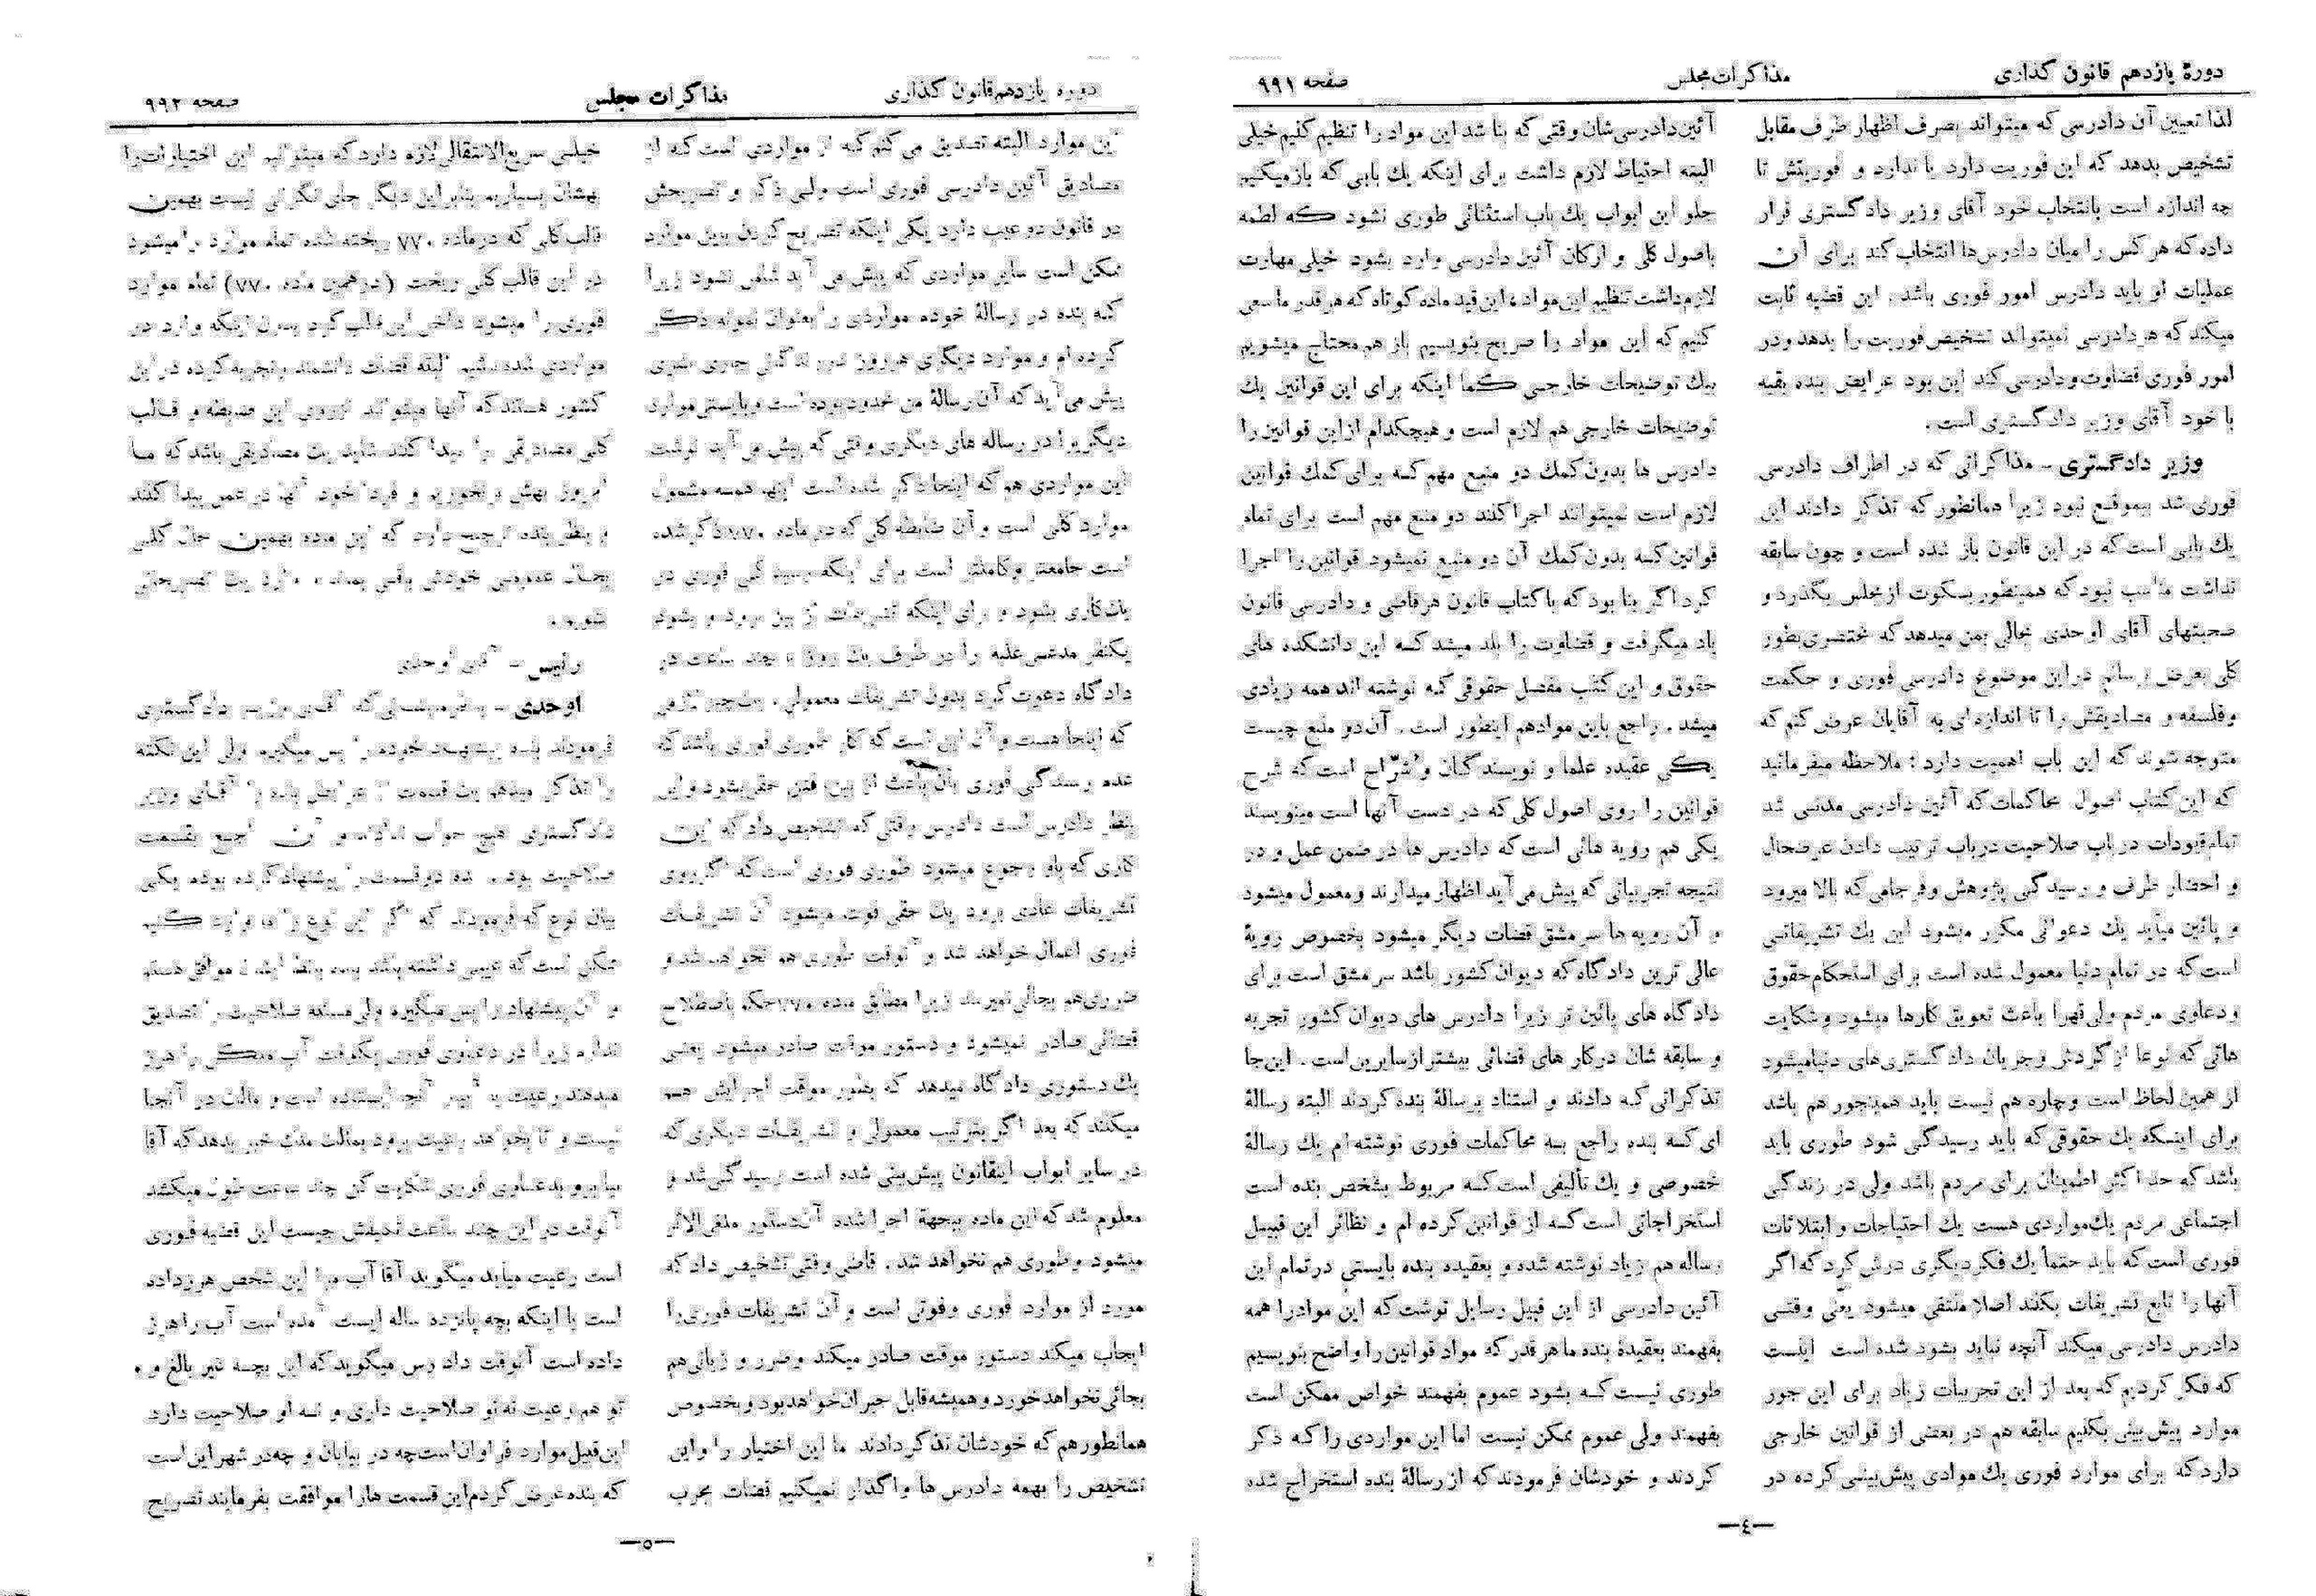 دورهٔ یازدهم قانون گذاری
مذاکرات مجلس
صفحه ۹۹۱
لذا تعیین آن دادرسی که میتواند بصرف اظهار طرف مقابل
تشخیص بدهد که این فوریت دارد یا ندارد و فوریتش تا
چه اندازه است بانتخاب خود آقای وزیر دادگستری قرار
داده که هر کس را میان دادرس‌ها انتخاب کند برای آن
عملیات او باید دادرس امور فوری باشد. این قضیه ثابت
میکند که هر دادرسی نمیتواند تشخیص فوریت را بدهد و در
امور فوری قضاوت و دادرسی کند این بود عرایض بنده بقیه
با خود آقای وزیر دادگستری است.
وزیر دادگستری ـ مذاکراتی که در اطراف دادرسی
فوری شد بیموقع نبود زیرا همانطور که تذکر دادند این
یك بابی است که در این قانون باز شده است و چون سابقه
نداشت مناسب نبود که همینطور بسکوت از مجلس بگذرد و
صحبتهای آقای اوحدی مجالی بمن میدهد که مختصری بطور
کلی بعرض برسانم در این موضوع دادرسی فوری و حکمت
و فلسفه و مصادیقش را تا اندازه‌ای به آقایان عرض کنم که
متوجه شوند که این باب اهمیت دارد: ملاحظه میفرمائید
که این کتاب اصول محاکمات که آئین دادرسی مدنی شد
تمام قیودات در باب صلاحیت در باب ترتیب دادن عرضحال
و احضار طرف و رسیدگی پژوهش و فرجامی که بالا میرود
و پائین میآید یك دعوائی مکرر میشود این یك تشریفاتی
است که در تمام دنیا معمول شده است برای استحکام حقوق
و دعاوی مردم ولی قهراً باعث تعویق کارها میشود و شکایت
هائی که نوعاً از گردش و جریان دادگستری‌های دنیا میشود
از همین لحاظ است و چاره هم نیست باید همینجور هم باشد
برای اینکه یك حقوقی که باید رسیدگی شود طوری باید
باشد که حد اکثر اطمینان برای مردم باشد ولی در زندگی
اجتماعی مردم یك مواردی هست یك احتیاجات و ابتلائات
فوری است که باید حتماً یك فکر دیگری درش کرد که اگر
آنها را تابع تشریفات بکنند اصلا منتفی میشود یعنی وقتی
دادرس دادرسی میکند آنچه نباید بشود شده است اینست
که فکر کردیم که بعد از این تجربیات زیاد برای این جور
موارد پیش بینی بکنیم سابقه هم در بعضی از قوانین خارجی
دارد که برای موارد فوری یك موادی پیش‌بینی کرده در
آئین دادرسی‌شان وقتی که بنا شد این مواد را تنظیم کنیم خیلی
البته احتیاط لازم داشت برای اینکه یك بابی که باز میکنیم
جلو این ابواب یك باب استثنائی طوری نشود که لطمه
باصول کلی و ارکان آئین دادرسی وارد بشود خیلی مهارت
لازم داشت تنظیم این مواد، این قید ماده کوتاه که هر قدر ما سعی
کنیم که این مواد را صریح بنویسیم باز هم محتاج میشویم
بیك توضیحات خارجی کما اینکه برای این قوانین یك
توضیحات خارجی هم لازم است و هیچکدام از این قوانین را
دادرس ها بدون کمك دو منبع مهم که برای کمك قوانین
لازم است نمیتوانند اجرا کنند دو منبع مهم است برای تمام
قوانین که بدون کمك آن دو منبع نمیشود قوانین را اجرا
کرد اگر بنا بود که با کتاب قانون هر قاضی و دادرسی قانون
یاد میگرفت و قضاوت را بلد میشد که این دانشکده های
حقوق و این کتب مفصل حقوقی که نوشته اند همه زیادی
میشد. راجع باین مواد هم اینطور است. آن دو منبع چیست
یکی عقیده علما و نویسندگان و شرّاح است که شرح
قوانین را روی اصول کلی که در دست آنها است مینویسند
یکی هم رویه هائی است که دادرس ها در ضمن عمل و در
نتیجه تجربیاتی که پیش می آید اظهار میدارند و معمول میشود
و آن رویه ها سر مشق قضات دیگر میشود بخصوص رویهٔ
عالی ترین دادگاه که دیوان کشور باشد سر مشق است برای
دادگاه های پائین تر زیرا دادرس های دیوان کشور تجربه
و سابقه شان در کار های قضائی بیشتر از سایرین است. این جا
تذکراتی که دادند و استناد برسالهٔ بنده کردند البته رسالهٔ
ای که بنده راجع به محاکمات فوری نوشته ام یك رسالهٔ
خصوصی و یك تألیفی است که مربوط بشخص بنده است
استخراجاتی است که از قوانین کرده ام و نظائر این قبیل
رساله هم زیاد نوشته شده و بعقیده بنده بایستی در تمام این
آئین دادرسی از این قبیل رسایل نوشت که این مواد را همه
بفهمند بعقیدهٔ بنده ما هر قدر که مواد قوانین را واضح بنویسیم
طوری نیست که بشود عموم بفهمند خواص ممکن است
بفهمند ولی عموم ممکن نیست اما این مواردی را که ذکر
کردند و خودشان فرمودند که از رسالهٔ بنده استخراج شده
—٤—
دوره یازدهم قانون گذاری
مذاکرات مجلس
صفحه ۹۹۲
این موارد البته تصدیق می کنم که از مواردی است که از
مصادیق آئین دادرسی فوری است ولی ذکر و تصریحش
در قانون دو عیب دارد یکی اینکه تصریح کردن بدین موارد
ممکن است سایر مواردی که پیش می آید شامل نشود زیرا
که بنده در رسالهٔ خودم مواردی را بعنوان نمونه ذکر
کرده ام و موارد دیگری هر روز در زندگانی جاری بشری
پیش می آید که آن رسالهٔ من محدود بوده است و بایستی موارد
دیگر را در رساله های دیگری وقتی که پیش می آید نوشت
این مواردی هم که اینجا ذکر شده است اینها همه مشمول
موارد کلی است و آن ضابطه کلی که در ماده ۷۷۰ ذکر شده
است جامعتر و کاملتر است برای اینکه رسیدگی فوری در
یك کاری بشود و برای اینکه تشریفات از بین برود و بشود
یکنفر مدعی علیه را در ظرف یك روز یا چند ساعت در
دادگاه دعوت کرد بدون تشریفات معمولی، یك چیز لازمی
که اینجا هست و آن این است که کار طوری فوری باشد که
عدم رسیدگی فوری بآن باعث از بین رفتن حقی بشود و این
بنظر دادرس است دادرس وقتی که تشخیص داد که این
کاری که باو رجوع میشود طوری فوری است که اگر روی
تشریفات عادی برود یك حقی فوت میشود آن تشریفات
فوری اعمال خواهد شد و آنوقت طوری هم نخواهد شد و
ضرری هم بجائی نمیرسد زیرا مطابق ماده ۷۷۰ حکم باصطلاح
قضائی صادر نمیشود و دستور موقت صادر میشود یعنی
یك دستوری دادگاه میدهد که بطور موقت اجرایش هم
میکنند که بعد اگر بترتیب معمولی و تشریفات دیگری که
در سایر ابواب اینقانون پیش‌بینی شده است رسیدگی شد و
معلوم شد که این ماده بیجهة اجرا شده آن دستور ملغی الاثر
میشود و طوری هم نخواهد شد. قاضی وقتی تشخیص داد که
مورد از موارد فوری و فوتی است و آن تشریفات فوری را
ایجاب میکند دستور موقت صادر میکند و ضرر و زیانی هم
بجائی نخواهد خورد و همیشه قابل جبران خواهد بود و بخصوص
همانطور هم که خودشان تذکر دادند ما این اختیار را و این
تشخیص را بهمه دادرس ها واگذار نمیکنیم قضات مجرب
خیلی سریع‌الانتقالی لازم دارد که میتوانیم این اختیارات را
بهشان بسپاریم بنابراین دیگر جای نگرانی نیست بهمین
قالب کلی که در ماده ۷۷۰ ریخته شده تمام موارد را میشود
در این قالب کلی ریخت (در همین ماده ۷۷۰) تمام موارد
فوری را میشود داخل این قالب کرد بدون اینکه وارد در
مواردی شده باشیم البته قضات دانشمند و تجربه کرده در این
کشور هستند که آنها میتوانند از روی این ضابطه و قالب
کلی مصادیقی را پیدا کنند شاید یك مصادیقی باشد که ما
امروز بهش بر نخوریم و فردا خود آنها در عمل پیدا کنند
و بنظر بنده ترجیح دارد که این ماده بهمین حال کلی
بحال عمومی خودش باقی بماند وارد یك تصریحاتی
نشویم.
رئیس ـ آقای اوحدی
اوحدی ـ بافرمایشاتی که آقای وزیر دادگستری
فرمودند بنده پیشنهاد خودم را پس میگیرم ولی این نکته
را تذکر میدهم یك قسمت از عرایض بنده را آقای وزیر
دادگستری هیچ جواب ندادند و آن راجع بقسمت
صلاحیت بود. بنده دو قسمت را پیشنهاد کرده بودم یکی
بیان نوع که فرمودند که اگر این نوع را ما وارد کنیم
ممکن است که عیبی داشته باشد بنده با نظر ایشان موافق هستم
و آن پیشنهاد را پس میگیرم ولی مسئله صلاحیت را تصدیق
ندارم زیرا در دعاوی فوری یکوقت آب ملکی را هرز
میدهند رعیت یا آبیار آنجا ایستاده است و مالك در آنجا
نیست و تا بخواهد رعیت برود بمالك ملك خبر بدهد که آقا
بیا برو بدعاوی فوری شکایت کن چند ساعت طول میکشد
آنوقت در این چند ساعت تکلیفش چیست این قضیه فوری
است رعیت میآید میگوید آقا آب مرا این شخص هرز داده
است یا اینکه بچه پانزده ساله ایست آمده است آب را هرز
داده است آنوقت دادرس میگوید که این بچه غیر بالغ و
تو هم رعیت نه تو صلاحیت داری و نه او صلاحیت دارد
این قبیل موارد فراوان است چه در بیابان و چه در شهر این است
که بنده عرض کردم این قسمت ها را موافقت بفرمایند تصریح
—٥—